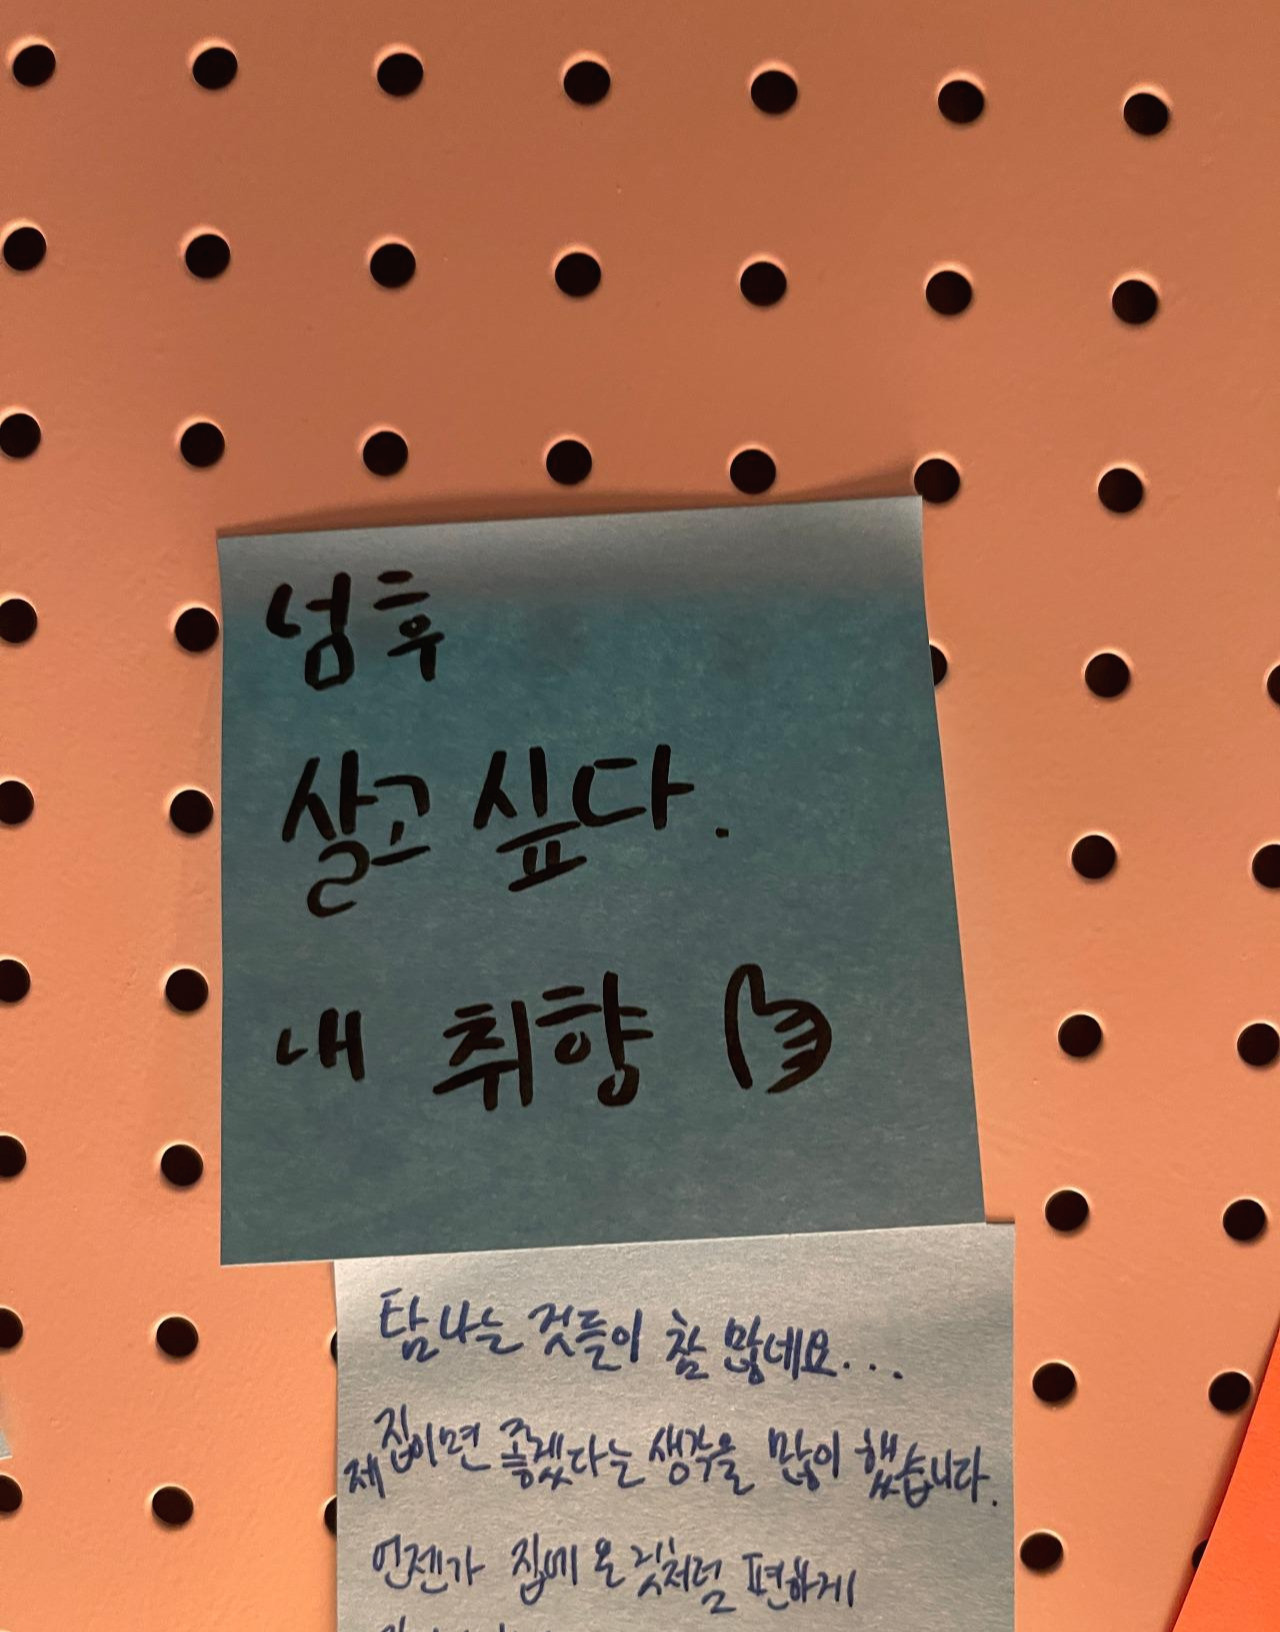 넘후
살고 싶다.
내 취향
탐나는 것들이 참 많네요...
제 집이면 좋겠다는 생각을 많이 했습니다.
언젠가 집에 온 것처럼 편하게